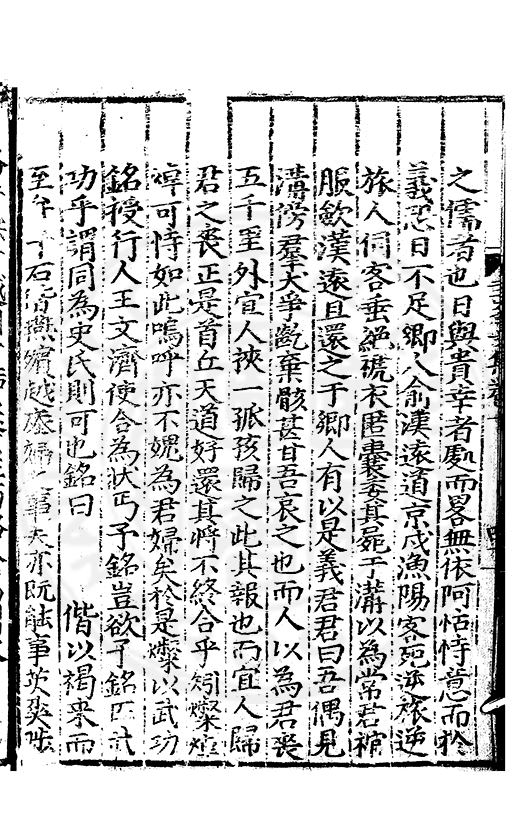 之儒者也日與貴幸者處而畧無依阿怙恃意而於
義恐日不足鄉人俞漢遠道京戍漁陽客死逆旅逆
旅人伺客垂絕褫衣匿橐委其屍于溝以為常君棺
服歛漢遠且還之于鄉人有以是義君君曰吾偶見
溝傍羣犬爭齕棄骸甚甘吾哀之也而人以為君喪
五千里外宜人挾一孤孩歸之此其報也而宜人歸
君之喪正是首丘天道好還其將不終合乎矧燦煒
焯可恃如此嗚呼亦不媿為君婦矣於是燦以武功
銘授行人王文濟使合為狀丐予銘豈欲予銘匹武
功乎謂同為史氏則可也銘曰 偕以褐来而
至 石